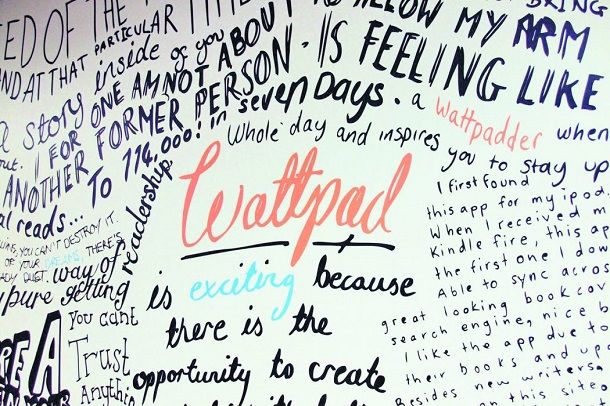 BRING
ED OF THE
THAT PARTICULAR TIME
ALLOW MY ARM
AND AT THAT
a story inside of you
IS FEELING LIKE
I FOR ONE AM NOT ABOUT
ANOTHER FORMER PERSON.
TO 114,000! in seven Days.
a wattpadder when
out.
al reads...
Whole day and inspires you to stay up
readership.
YOU CAN'T DESTROY IT.
OF YOUR DREAMS. THERE'S
DUST.
way of
pure getting
you cant
Trust
Anything
Wattpad
is exciting because
there is the
opportunity to create
I first found
this app for my ipod.
When I received m
Kindle fire, this ap
the first one I dow
Able to sync across
great looking book cov
search engine, nice b
I like the app due to
their books and up
Besides new writers
on this site